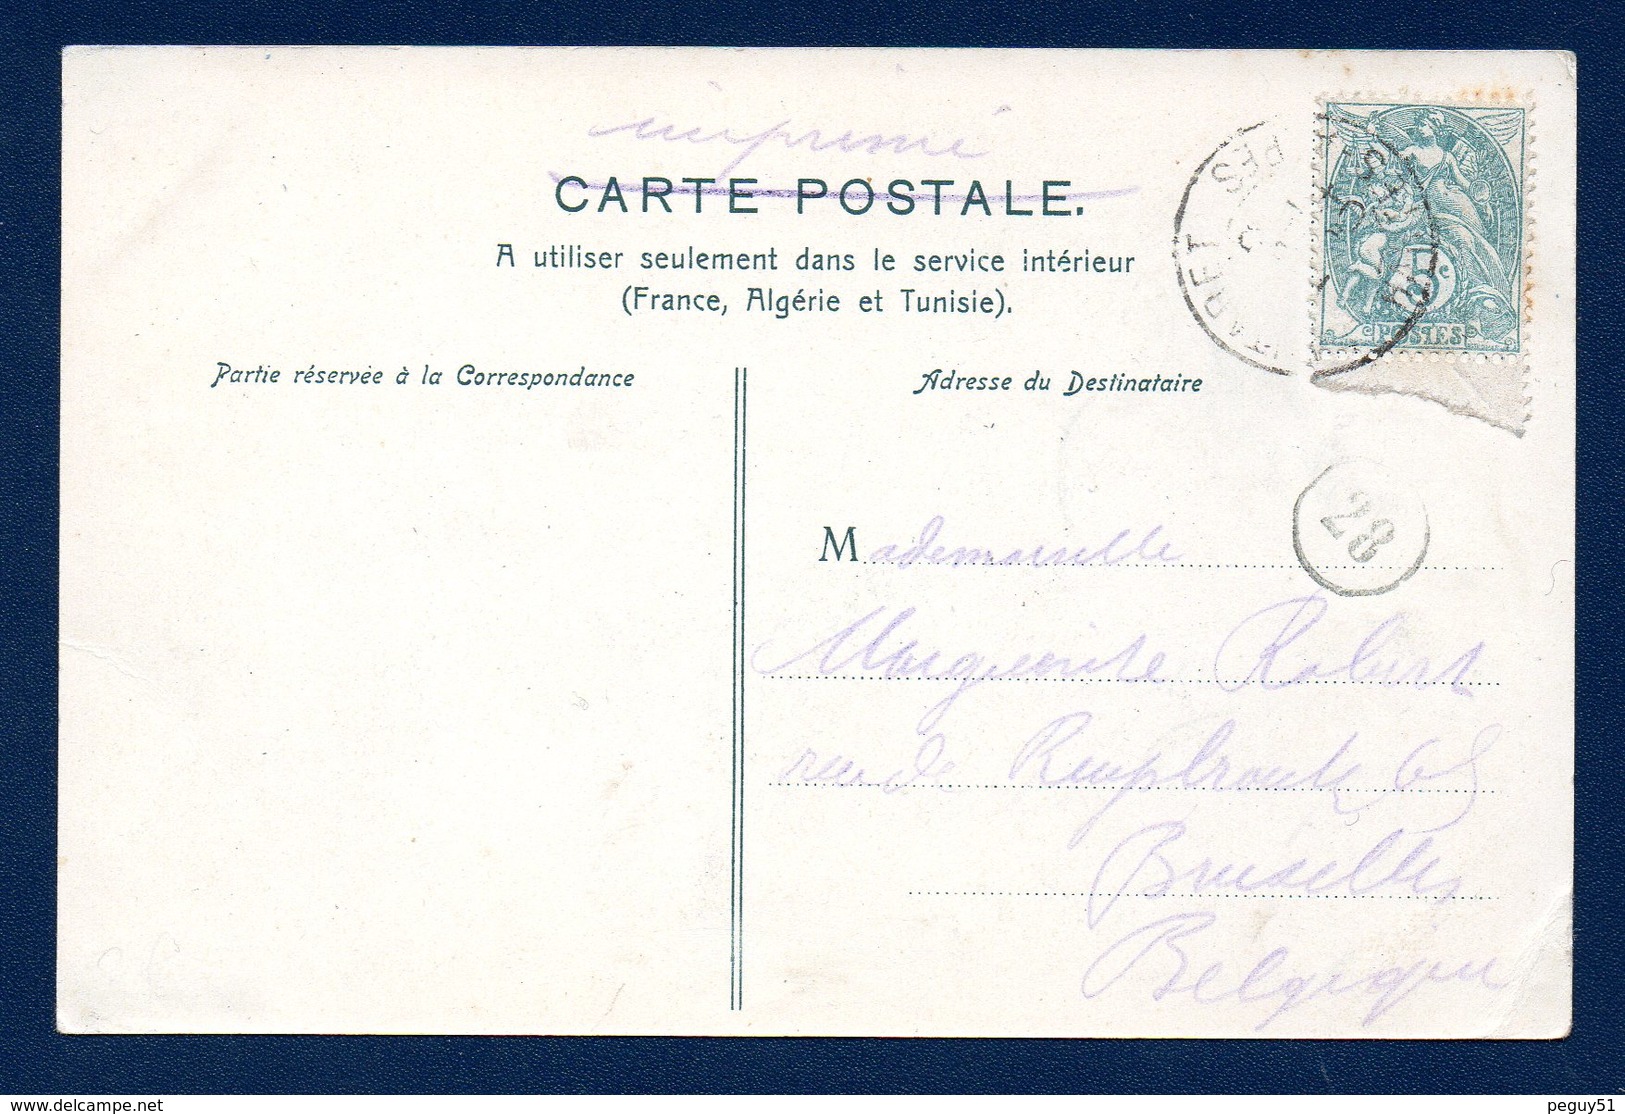 imprimé
CARTE POSTALE.
A utiliser seulement dans le service intérieur
(France, Algérie et Tunisie).
Partie réservée à la Correspondance
Adresse du Destinataire
5c
POSTES
28
Mademoiselle
Marguerite Robert
rue de 68
Bruxelles
Belgique
delcampe.net
peguy51